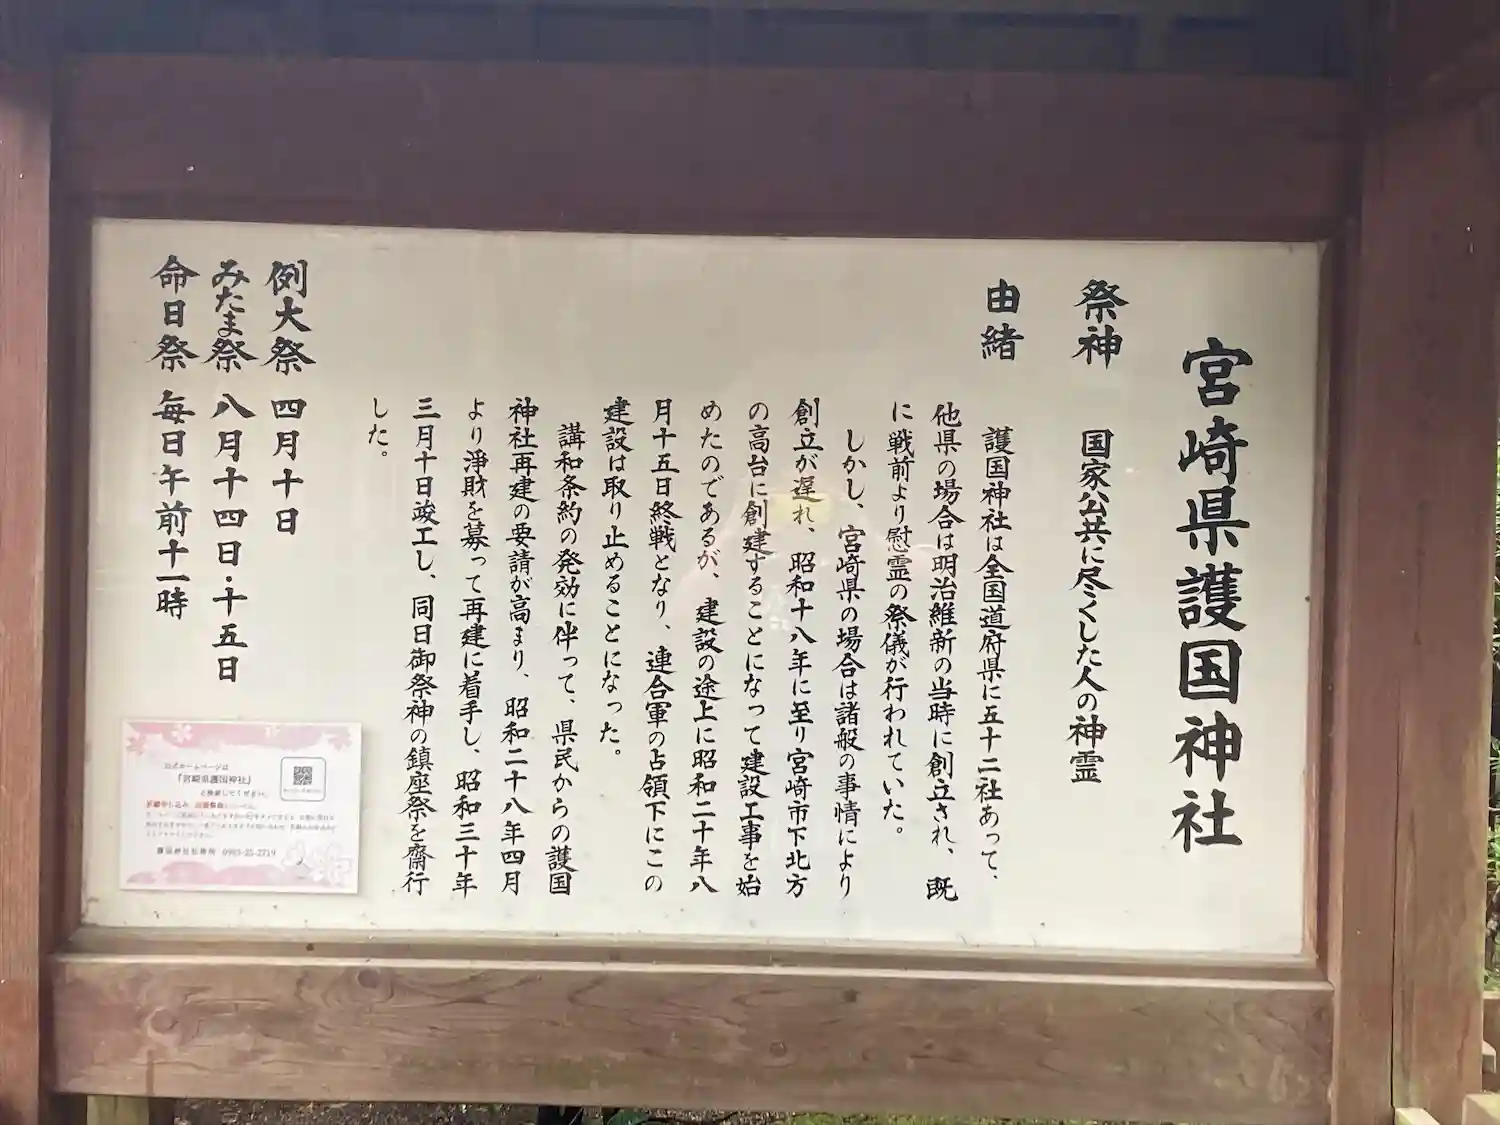 宮崎県護国神社
祭神 国家公共に尽くした人の神霊
由緒
護国神社は全国道府県に五十二社あって、
他県の場合は明治維新の当時に創立され、既
に戦前より慰霊の祭儀が行われていた。
しかし、宮崎県の場合は諸般の事情により
創立が遅れ、昭和十八年に至り宮崎市下北方
の高台に創建することになって建設工事を始
めたのであるが、建設の途上に昭和二十年八
月十五日終戦となり、連合軍の占領下にこの
建設は取り止めることになった。
講和条約の発効に伴って、県民からの護国
神社再建の要請が高まり、昭和二十八年四月
より淨財を募って再建に着手し、昭和三十年
三月十日竣工し、同日御祭神の鎮座祭を齋行
した。
例大祭 四月十日
みたま祭 八月十四日・十五日
命日祭 毎日午前十一時
公式ホームページは
「宮崎県護国神社」
と検索してください。
護国神社社務所 0985-25-2719